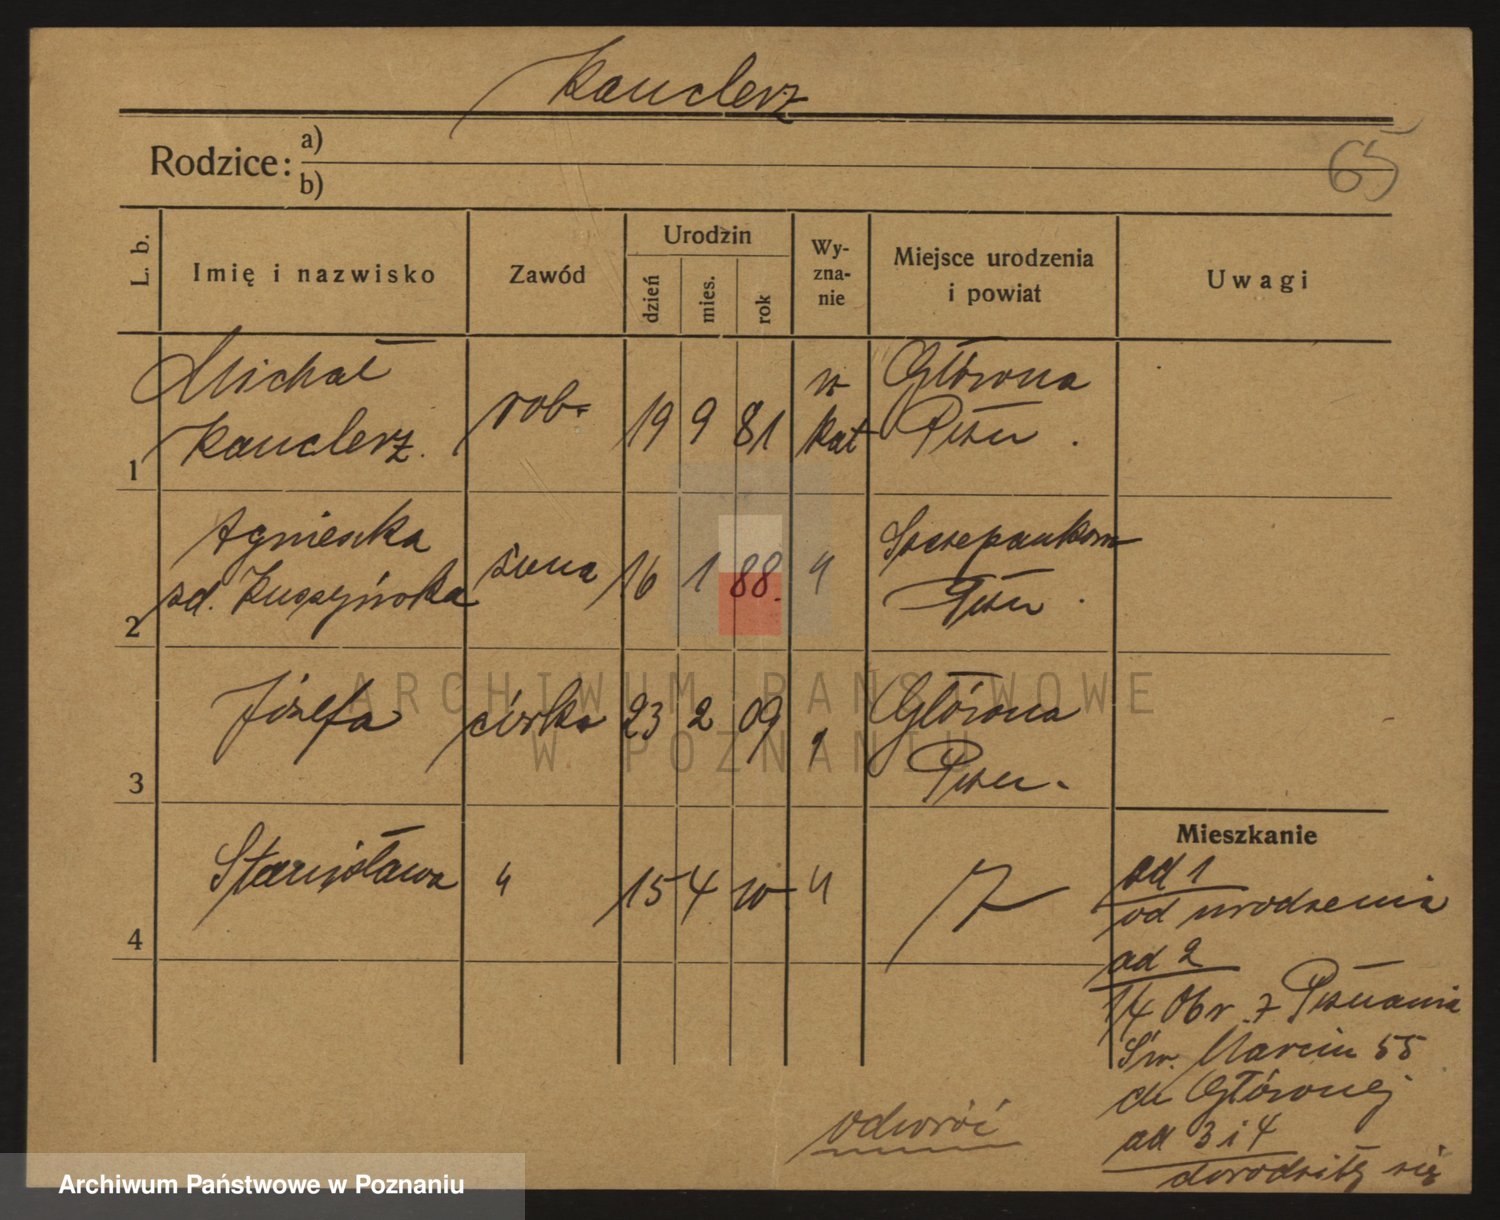 Kanclerz
65
Rodzice: a)
b)
L. b. Imię i nazwisko Zawód Urodzin dzień mies. rok Wy-zna-nie Miejsce urodzenia i powiat Uwagi
Michał rob. 19 9 81 rz Główna
1 Kanclerz. kat Pozn.
Agnieszka żona 16 1 88. " Szczepankowo
2 zd. Pozn.
Józefa córka 23 2 09 " Główna
3 Pozn.
4 Stanisława " 15 4 10 "
Mieszkanie
ad 1
od urodzenia
ad 2
z Poznania
Św. Marcin 55
do Głównej
ad 3 i 4
dorodziły się
odwróć
ARCHIWUM PAŃSTWOWE
W POZNANIU
Archiwum Państwowe w Poznaniu